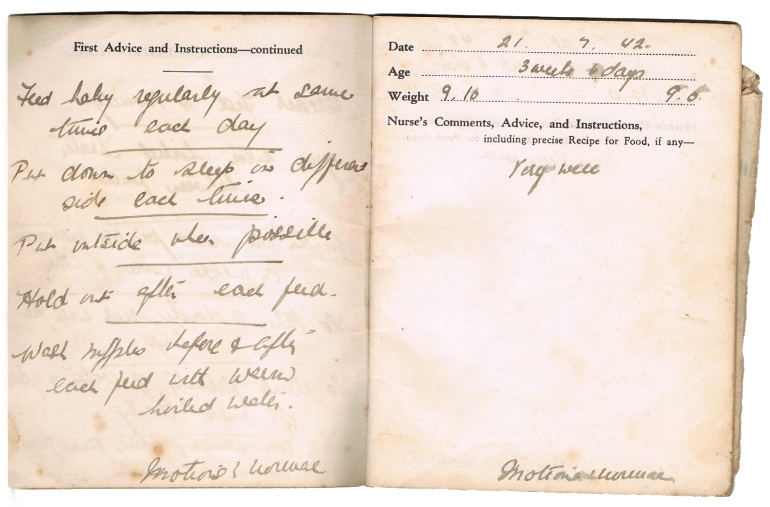 First Advice and Instructions—continued
Feed baby regularly at same
time each day
Put down to sleep on different
side each time.
Put outside when possible
Hold out after each feed.
Wash nipples before & after
each feed with warm
boiled water.
Motions normal
Date 21. 7. 42.
Age 3 weeks 6 days
Weight 9.10 9.6.
Nurse's Comments, Advice, and Instructions,
including precise Recipe for Food, if any—
Very well
Motions normal